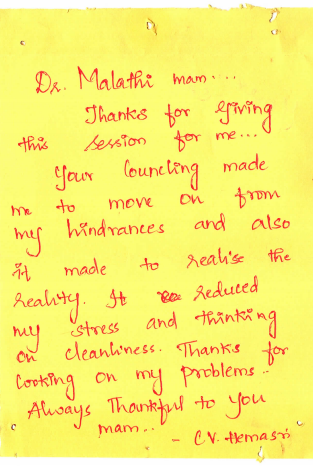 Dr. Malathi mam....
Thanks for giving
this session for me...
Your Councling made
me to move on from
my hindrances and also
it made to realise the
reality. It reduced
my stress and thinking
on cleanliness. Thanks for
Cooking on my problems..
Always Thankful to you
mam..
- C.V. Hemasri